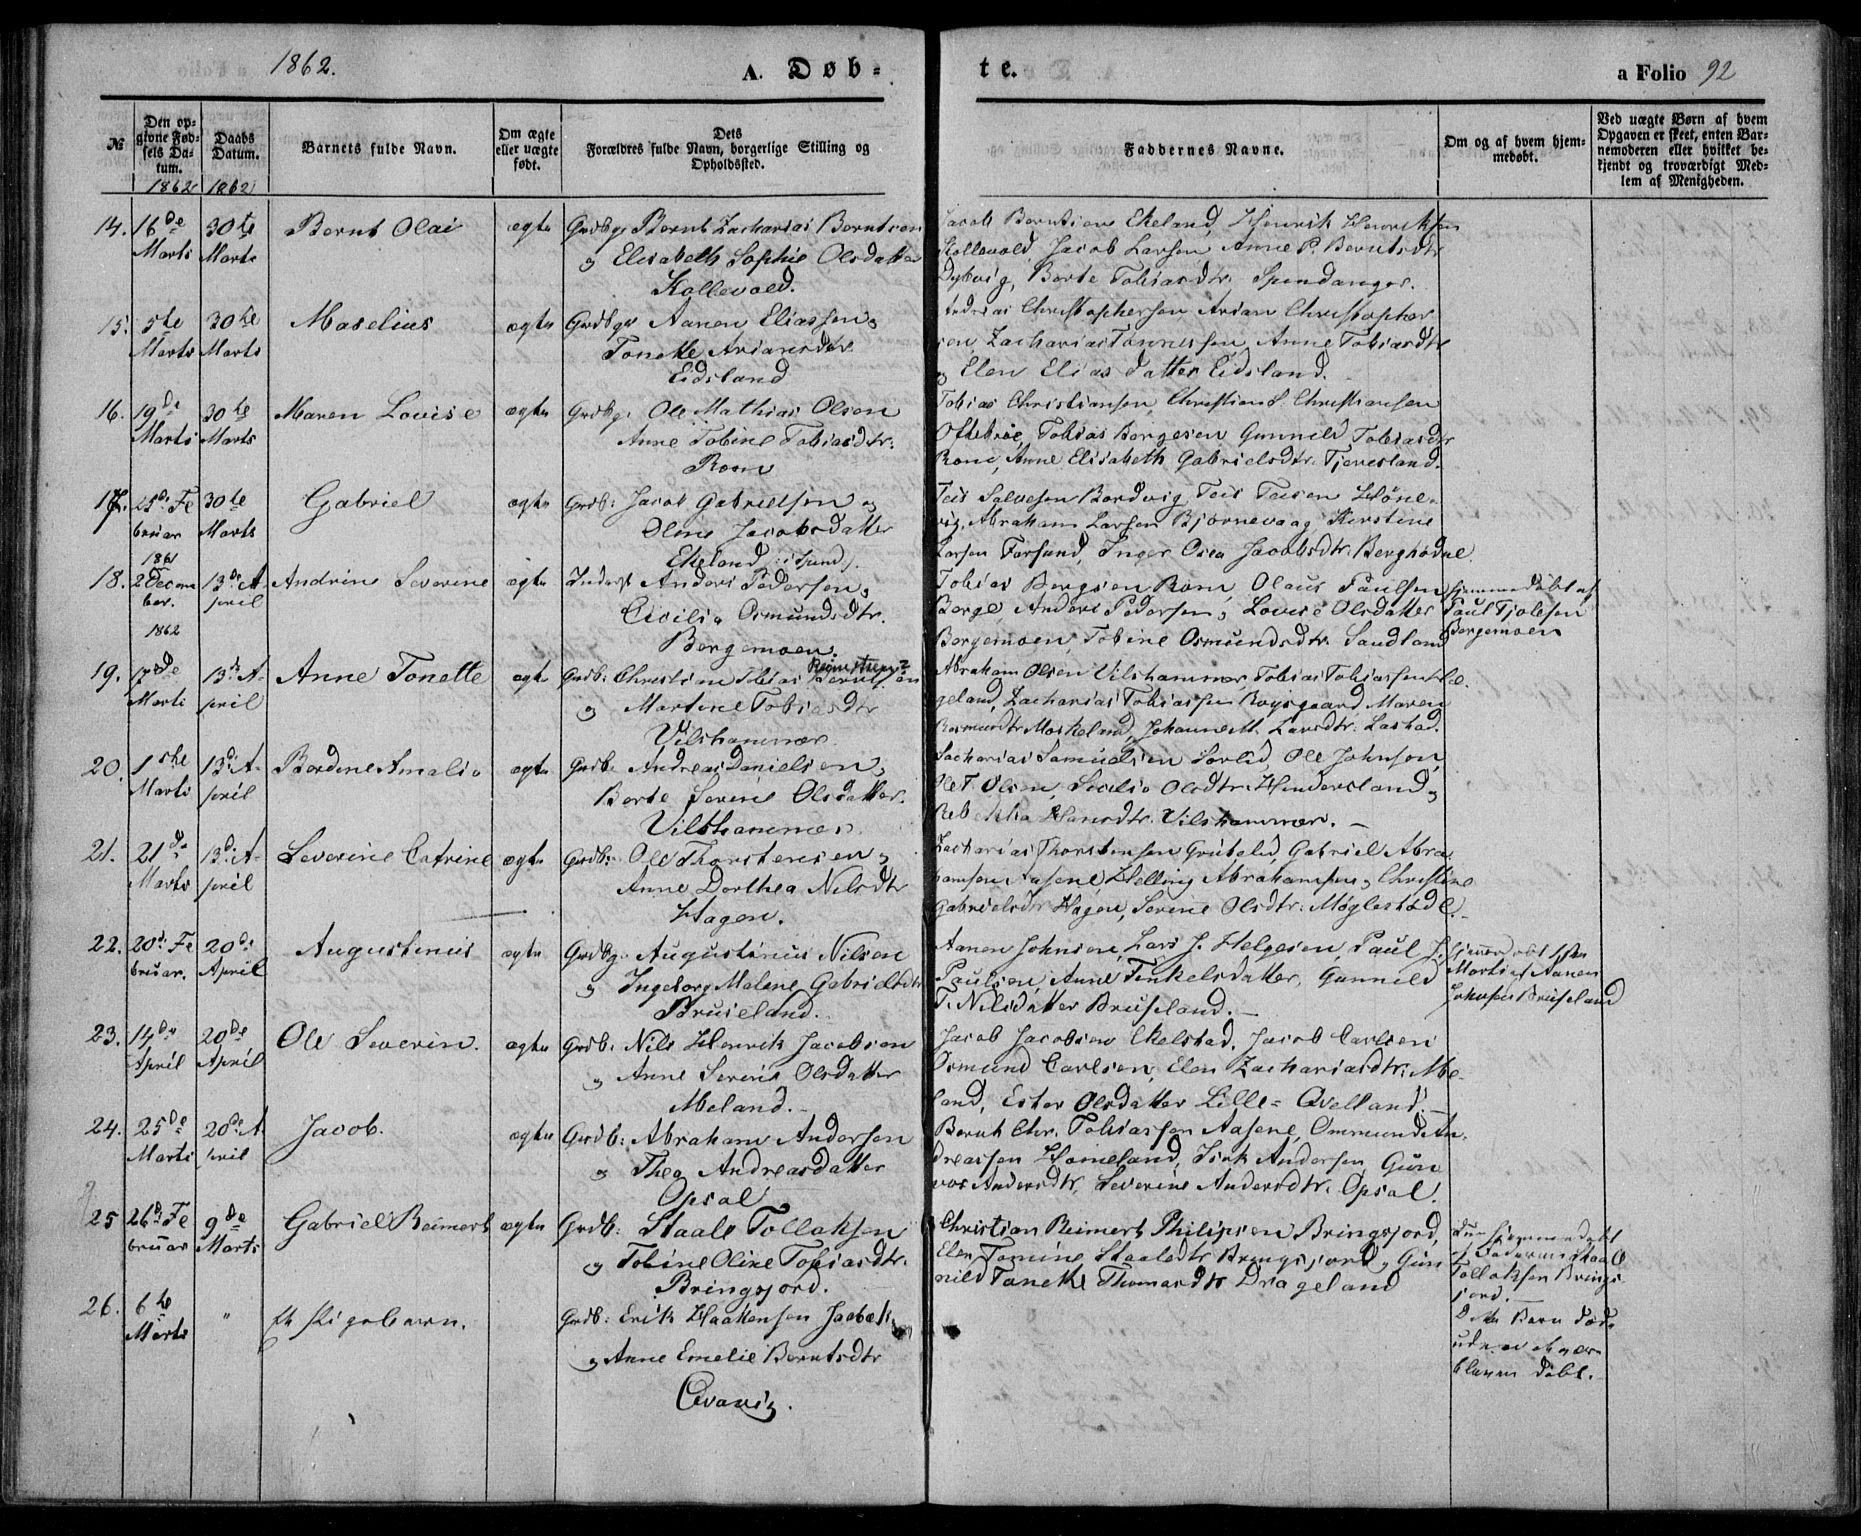 1862.
A. Døb=
te.
a Folio 92
№
Den op-
givne Fød-
sels Da-
tum.
1862
Daabs
Datum.
1862
Barnets fulde Navn.
Om ægte
eller uægte
født.
Dets
Forældres fulde Navn, borgerlige Stilling og
Opholdssted.
Faddernes Navne.
Om og af hvem hjem-
medøbt.
Ved uægte Børn af hvem
Opgaven er skeet, enten Bar-
nemoderen eller hvilket be-
kjendt og troværdigt Med-
lem af Menigheden.
14. 16de Marts 30te Marts Bernt Olai ægte
Grdbgr Bernt Zacharias Berntsen
og Elisabeth Sophie Olsdatter
Kollevold.
Jacob Berntsen Ekeland, Henrik Henriksen
Kollevold, Jacob Larsen Anne P. Berntsdtr
Dybvig, Berte Tobiasdtr. Spindanger.
15. 5te Marts 30te Marts Maselius ægte
Grdbgr Aanen Eliassen og
Tonette Ariansdtr
Eidsland
Andreas Christophersen Arian Christopher
sen, Zacharias Tønnessen, Anne Tobiasdtr
og Elen Elias datter Eidsland.
16. 19de Marts 30te Marts Maren Lovise ægte
Grdbgr Ole Mathias Olsen
Anne Tobine Tobiasdtr.
Rom
Tobias Christiansen, Christian S Christiansen
Oftebroe, Tobias Børgesen Gunnild Tobiasdtr
Rom, Anne Elisabeth Gabrielsdtr. Tjersland.
17. 25de Fe
bruar 30te Marts Gabriel ægte
Grdb: Jacob Gabrielsen og
Oline Jacobsdatter
Ekeland i Sund
Teis Salvesen Bordvig, Teis Teisen Høne-
vig, Abraham Larsen Bjørnevaag Kerstine
Larsen Farsund, Inger Osea Jacobsdtr. Berghodne
1861
18. 2 Decem
ber. 13de A
pril Andrine Severine ægte
Inderst Anders Pedersen og
Cicilia Osmundsdtr.
Bergemoen.
Tobias Bergsen Rom, Olaus Paulsen
Berge, Anders Pedersen, Lovise Olsdatter
Bergemoen, Tobine Osmundsdtr. Sandland
hjemmedøbt af
Paul Tjølsen
Bergemoen
1862
19. 17de Marts 13de A-
pril Anne Tonette ægte
Grdb: Christian Tobias Berntsen
og Martine Tobiasdtr
Vilshammer
Abraham Olsen Vilshammer, Tobias Tobiassen Hæ-
geland, Zacharias Tobiassen Røysgaard Maren
Rasmusdtr Moskeland, Johanne M. Larsdtr. Lastad.
20. 1ste Marts 13de A-
pril Berdine Amalia ægte
Grdb: Andreas Danielsen og
Berte Serine Olsdatter.
Vilshammer
Zacharias Samuelsen Sørlid, Ole Johnsen,
Ole T. Olsen, Secilia Olsdtr. Hindersland og
Rebekka Hansdtr. Vilshammer. —
21. 21de Marts 13de A-
pril Severine Catrine ægte
Grdb: Ole Thorstensen og
Anne Dorthea Nilsdtr
Hagen.
Zacharias Thorstensen Grutelid, Gabriel Abra
hamsen Aasene, Helling Abrahamsen og Christine
Gabrielsdtr Hagen, Serine Olsdtr. Møglestødl.
22. 20de Fe
bruar. 20de April Augustinus ægte
Grdbgr Augustinus Nilsen
og Ingeborg Malene Gabrielsdtr
Bruseland.
Aanen Johnsen, Lars J. Helgesen, Paul J.
Paulsen, Anne Tinkelsdatter, Gunnild
T. Nilsdatter Bruseland. —
hjemmedøbt
Marts af Aanen
Johnsen Bruseland
23. 14de April 20de April Ole Severin. ægte
Grdb: Nils Henrik Jacobsen
og Anne Serine Olsdatter
Meland. -
Jacob Jacobsen Ekelstad, Jacob Carlsen
Osmund Carlsen, Elen Zachariasdtr. Me-
land, Ester Olsdatter Lille-Qvelland. —
24. 25de Marts 20de A
pril Jacob. ægte
Grdb: Abraham Andersen
og Thea Andreasdatter
Opsal
Bernt Chr. Tobiassen Aasene, Ommund An-
dreassen Homeland, Isak Andersen, Gun
vor Andersdtr, Severine Andersdtr. Opsal.
25 26de Fe
bruar 9de Marts Gabriel Reimert ægte
Grdb: Staale Tollaksen
og Tobine Oline Tobiasdtr.
Bringsjord.
Christian Reimert Philipsen Bringsjord,
Elen Tomine Staalesdtr Bringsjord, Gun
nild Tonette Thomasdtr Drageland
hjemmedøbt
af Faderen Staale
Tollaksen Brings-
jord. —
26. 6te Marts " Et Pigebarn.
Grdb: Erik Haakensen Jaabæk
og Anne Emelie Berntsdtr
Qvavig.
Dette Barn døde
uden at være
bleven døbt. —